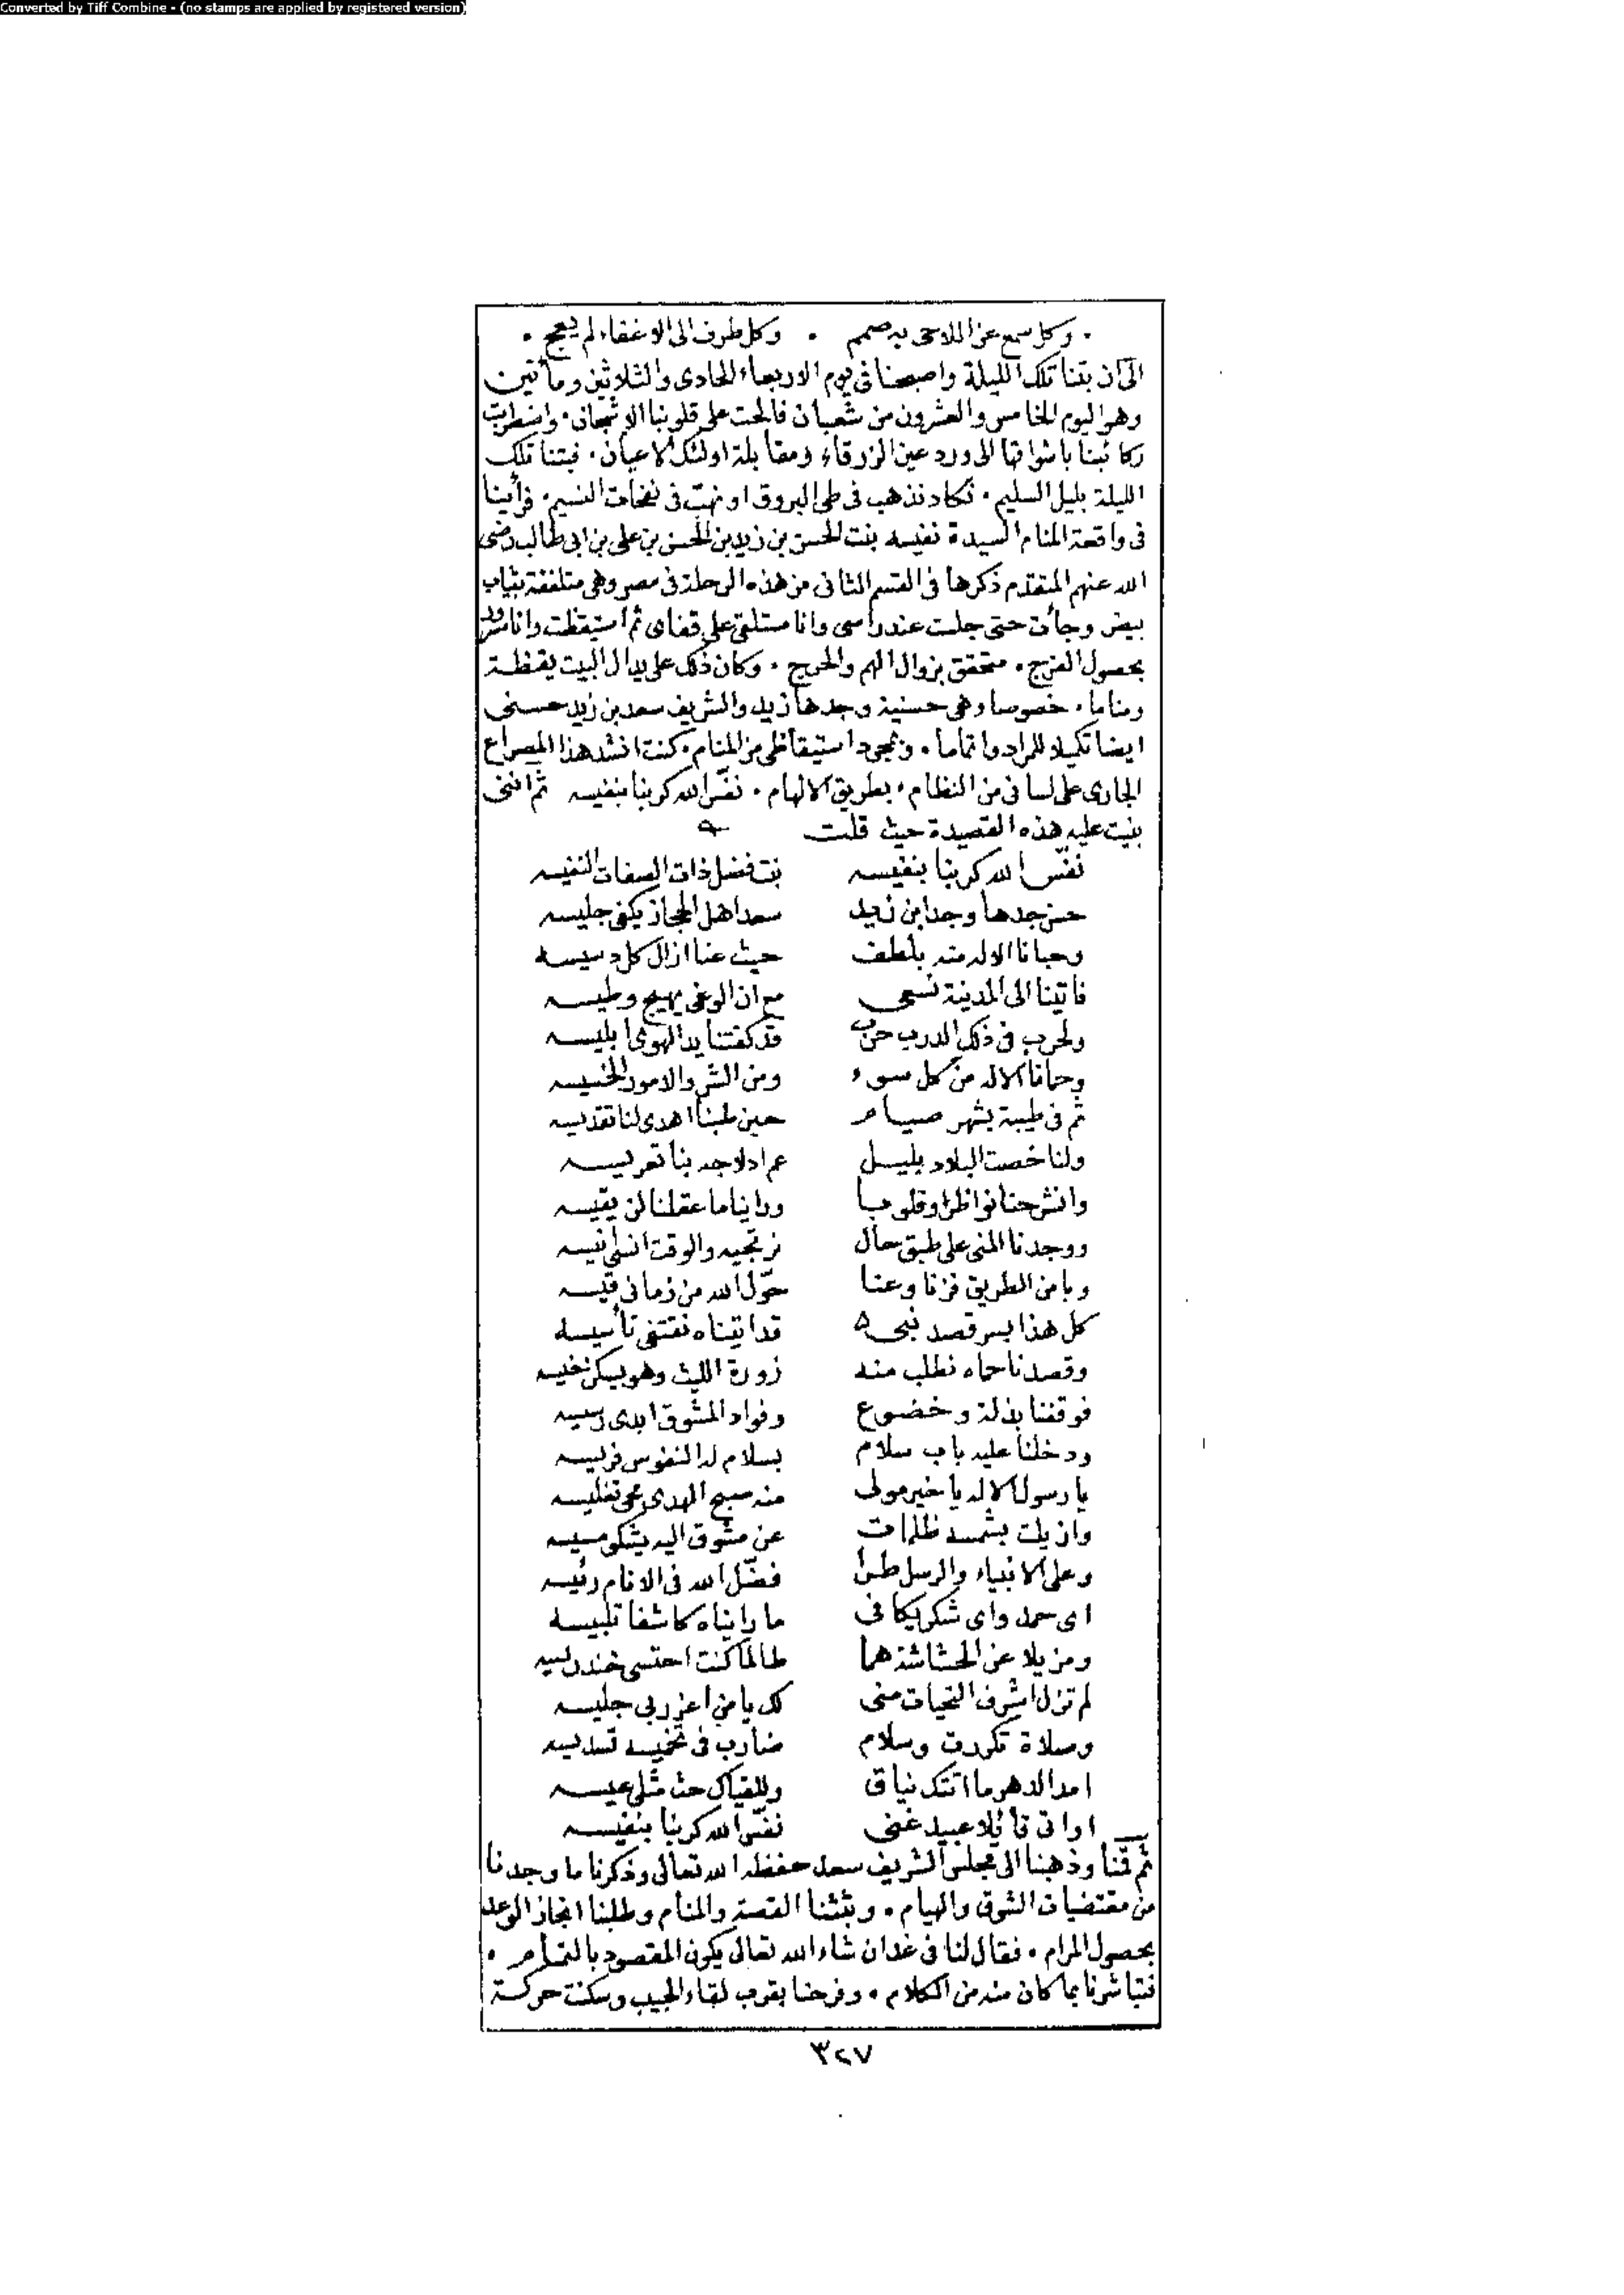 Converted by Tiff Combine - (no stamps are applied by registered version)
وكل سمع عن اللاحى به صمم . وكل طرف الى الاغفاء لم يعج .
الى ان بتنا تلك الليلة واصبحنا فى يوم الاربعاء الحادى والثلاثين ومأتين
وهو اليوم الخامس والعشرون من شعبان فالحت على قلوبنا الاشجان . واضطربت
ركائبنا باشواقها الى ورد عين الزرقاء ومقابلة اولئك الاعيان . فبتنا تلك
الليلة بليل السليم . نكاد نذهب فى طى البروق او نهب فى نفحات النسيم . فرأينا
فى واقعة المنام السيدة نفيسه بنت الحسن بن زيد بن الحسن بن على بن ابى طالب رضى
الله عنهم المتقدم ذكرها فى القسم الثانى من هذه الرحلة فى مصر وهى متلففة بثياب
بيض وجأت حتى جلست عند راسى وانا مستلقى على قفاى ثم استيقظت وانا مسرور
بحصول الفرج . متحقق بزوال الهم والحرج . وكان ذلك على يد ال البيت يقظة
ومناما . خصوصا وهى حسنية وجدها زيد والشريف سعد بن زيد حسنى
ايضا تكميلا للمراد واتماما . وبمجرد استيقاظى من المنام . كنت انشد هذا المصراع
الجارى على لسانى من النظام . بطريق الالهام . نفّس الله كربنا بنفيسه ثم اننى
بنيت عليه هذه القصيدة حيث قلت
نفّس الله كربنا بنفيسه بنت فضل ذات الصفات النفيسه
حسن جدها وجد ابن زيد سعد اهل الحجاز يكفى جليسه
وحبانا الاله منه بلطف حيث عنا ازال كل دسيسه
فاتينا الى المدينة نسعى مع ان الوغى يهيج وطيسه
ولحرب فى ذلك الدرب حزب قد كفتنا يد الهوى ابليسه
وحمانا الاله من كل سوء ومن الشر والامور الخسيسه
ثم فى طيبة بشهر صيام حين طبنا اهدى لنا تقديسه
ولنا خصت البلاد بليل عم ادلاجه بنا تعريسه
وانشرحنا نواظرا وقلوبا وراينا ما عقلنا لن يقيسه
ووجدنا المنى على طبق حال نرتجيه والوقت انسى نيسه
وبامن الطريق فزنا وعنا حوّل الله من زمانى قيسه
كل هذا بسر قصد نبى قد اتيناه نقتفى تأسيسه
وقصدنا حماه نطلب منه زورة الليث وهو يسكن خيسه
فوقفنا بذلة وخضوع وفواد المشوق ابدى رسيسه
ودخلنا عليه باب سلام بسلام له النفوس فريسه
يا رسول الاله يا خير مولى منه صبح الهدى محى تغليسه
وازيلت بشمسه ظلمات عن مشوق اليه يشكو مسيسه
وعلى الانبياء والرسل طرا فضّل الله فى الانام رئيسه
اى حمد واى شكر يكافى ما رايناه كاشفا تلبيسه
ومزيلا عن الحشاشة هما طالما كنت احتسى خندريسه
لم تزل اشرف التحيات منى لك يا من اعز ربى جليسه
وصلاة تكررت وسلام ضارب فى تخميسه تسديسه
امد الدهر ما اتتك نياق وللقياك حث مثلى عيسه
او اتى قائلا عبيد غنى نفّس الله كربنا بنفيسه
ثم قمنا وذهبنا الى مجلس الشريف سعد حفظه الله تعالى وذكرنا ما وجدنا
من مقتضيات الشوق والهيام . وبثثنا القصة والمنام وطلبنا انجاز الوعد
بحصول المرام . فقال لنا فى غد ان شاء الله تعالى يكون المقصود بالتمام .
فتباشرنا بما كان منه من الكلام . وفرحنا بقرب لقاء الحبيب وسكنت حركة
٣٢٧